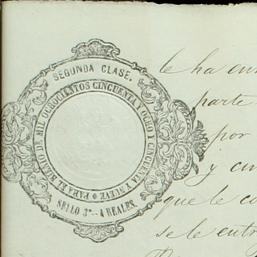 SEGUNDA CLASE.
PARA EL BIENIO DE MIL OCHOCIENTOS CINCUENTA Y OCHO Y CINCUENTA Y NUEVE
SELLO 3º—4 REALES.
le ha
parte
por
y
que le
se le